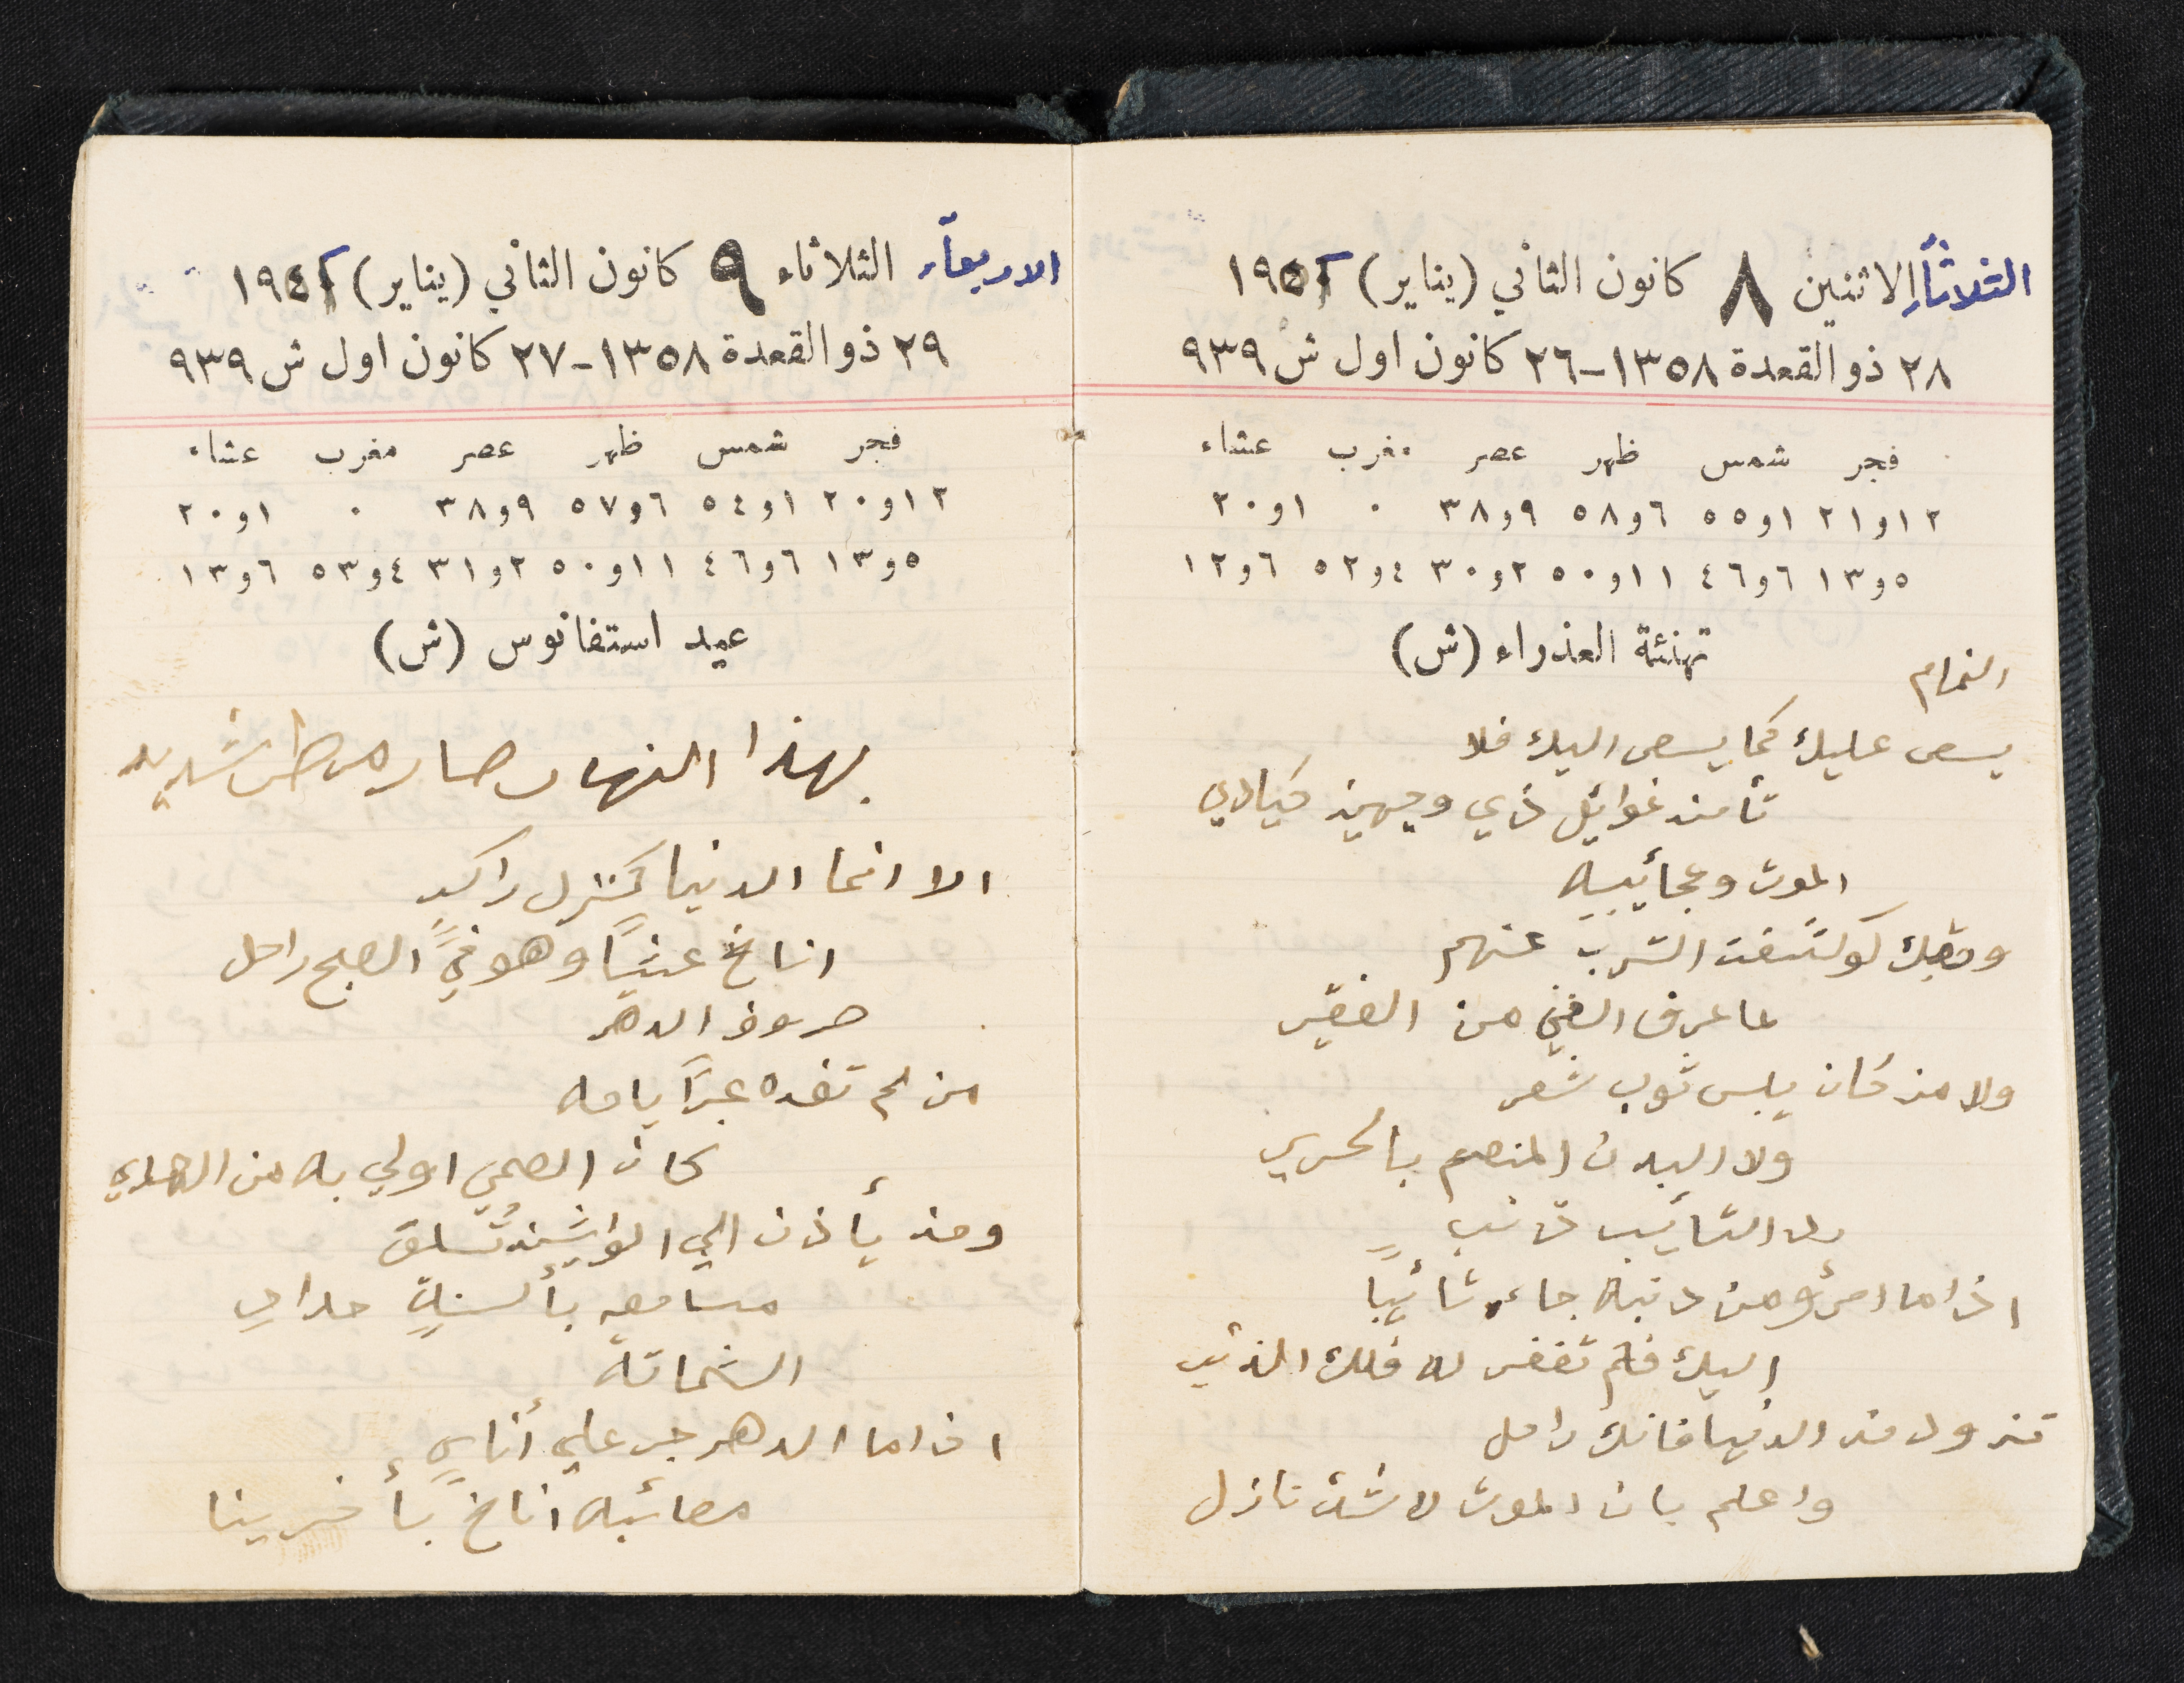 الثلاثاء الاثنين ٨ كانون الثاني (يناير) ١٩٤١
٢٨ ذو القعدة ١٣٥٨-٢٦ كانون اول ش ٩٣٩
فجر شمس ظهر عصر مغرب عشاء
١٢و٢١ ١و٥٥ ٦و٥٨ ٩و٣٨ ٠ ١و٢٠
٥و١٣ ٦و٤٦ ١١و٥٠ ٢و٣٠ ٤و٥٢ ٦و١٢
تهنئة العذراء (ش)
النمام
يسعى عليك كما يسعى اليك فلا
تأمن غوائل ذي وجهين كيادي
الموت وعجائيبه
وحقك لو كشفت الترب عنهم
ما عرف الغني من الفقير
ولا من كان يلبس ثوب شعر
ولا البدن المنعم بالحرير
اذا ما امرؤ من ذنبه جاء تائبًا
اليك فلم تغفر له فلك الذنب
تزود من الدنيا فانك راحل
واعلم بان الموت لا شك نازل
الاربعاء الثلاثاء ٩ كانون الثاني (يناير) ١٩٤١
٢٩ ذو القعدة ١٣٥٨-٢٧ كانون اول ش ٩٣٩
فجر شمس ظهر عصر مغرب عشاء
١٢و٢٠ ١و٥٤ ٦و٥٧ ٩و٣٨ ٠ ١و٢٠
٥و١٣ ٦و٤٦ ١١و٥٠ ٢و٣١ ٤و٥٣ ٦و١٣
عيد استفانوس (ش)
بهذا النهار صار مطر شديد
الا انما الدنيا كمنزل راكب
اناخ عشيًا وهو في الصبح راحل
صروف الدهر
من لم تفده عبرًا يامه
كان العمى اولي به من الهدي
ومن يأذن الي الواشين تُسلق
مسامعه بألسنةٍ حدادِ
الشماتة
اذا ما الدهر جر علي أناسٍ
مصائبه اناخ بأخرينا